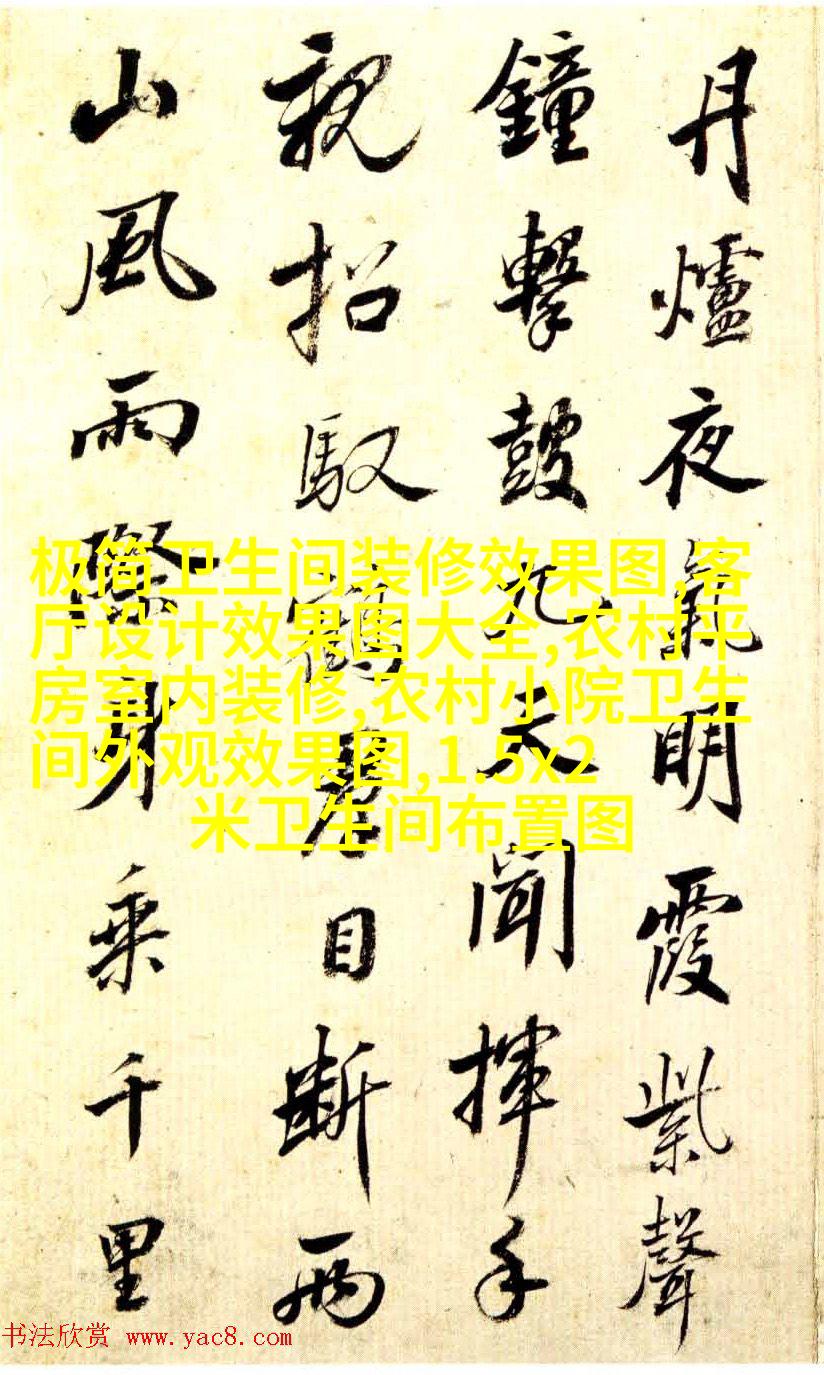 丹爐夜氣明霞紫聲
鐘擊鼓九天聞揮手
親招馭鶴君目斷兩
山風雨際身乘千里
极简卫生间装修效果图,客
厅设计效果图大全,农村平
房室内装修,农村小院卫生
间外观效果图,1.5x2
米卫生间布置图
书法欣赏 www.yac8.com